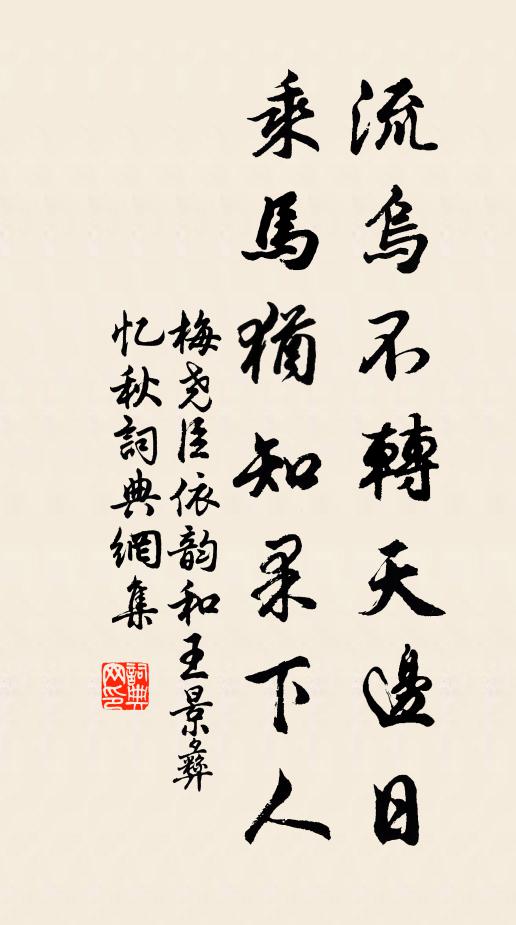 流烏不轉天邊日
乘馬猶知果下人
梅尧臣依韵和王景彝
忆秋詞典網集
詞典